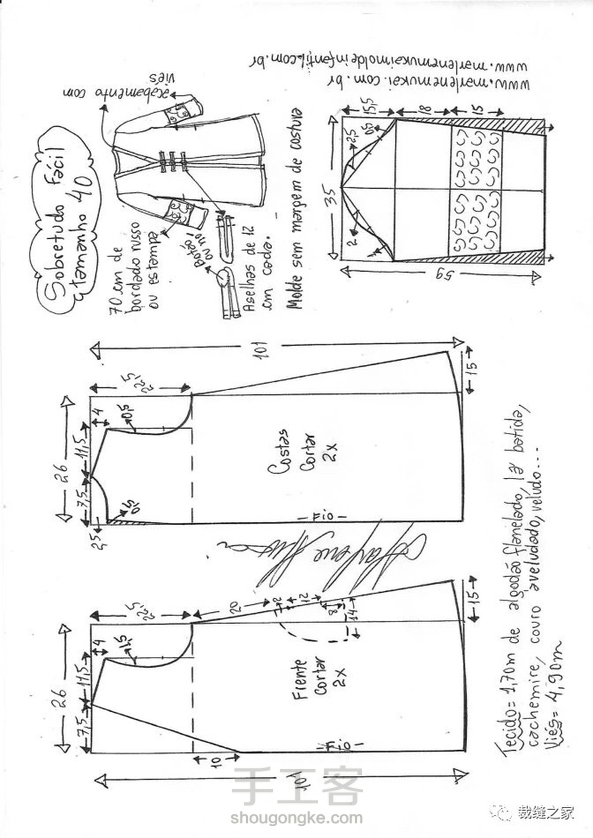 Sobretudo Fácil
tamanho 40
acabamento com
viés
70 cm de
bordado russo
ou estampa
Botão
ou nó
Aselhas de 12
cm cada.
Molde sem margem de costura
www.marlenemukai.com.br
www.marlenemukaimoldeinfantil.com.br
35
15,5
18
15
2,5
2
1
59
101
22,5
26
7,5
11,5
4
0,5
0,5
2,5
15
Costas
Cortar
2x
Fio
101
22,5
20
2
12
8
14
15
26
7,5
11,5
4
1,5
10
Frente
Cortar
2x
Fio
Tecido = 1,70m de algodão flanelado, lã batida,
cachemire, couro aveludado, veludo...
Viés = 4,90m
手工客
shougongke.com
裁缝之家